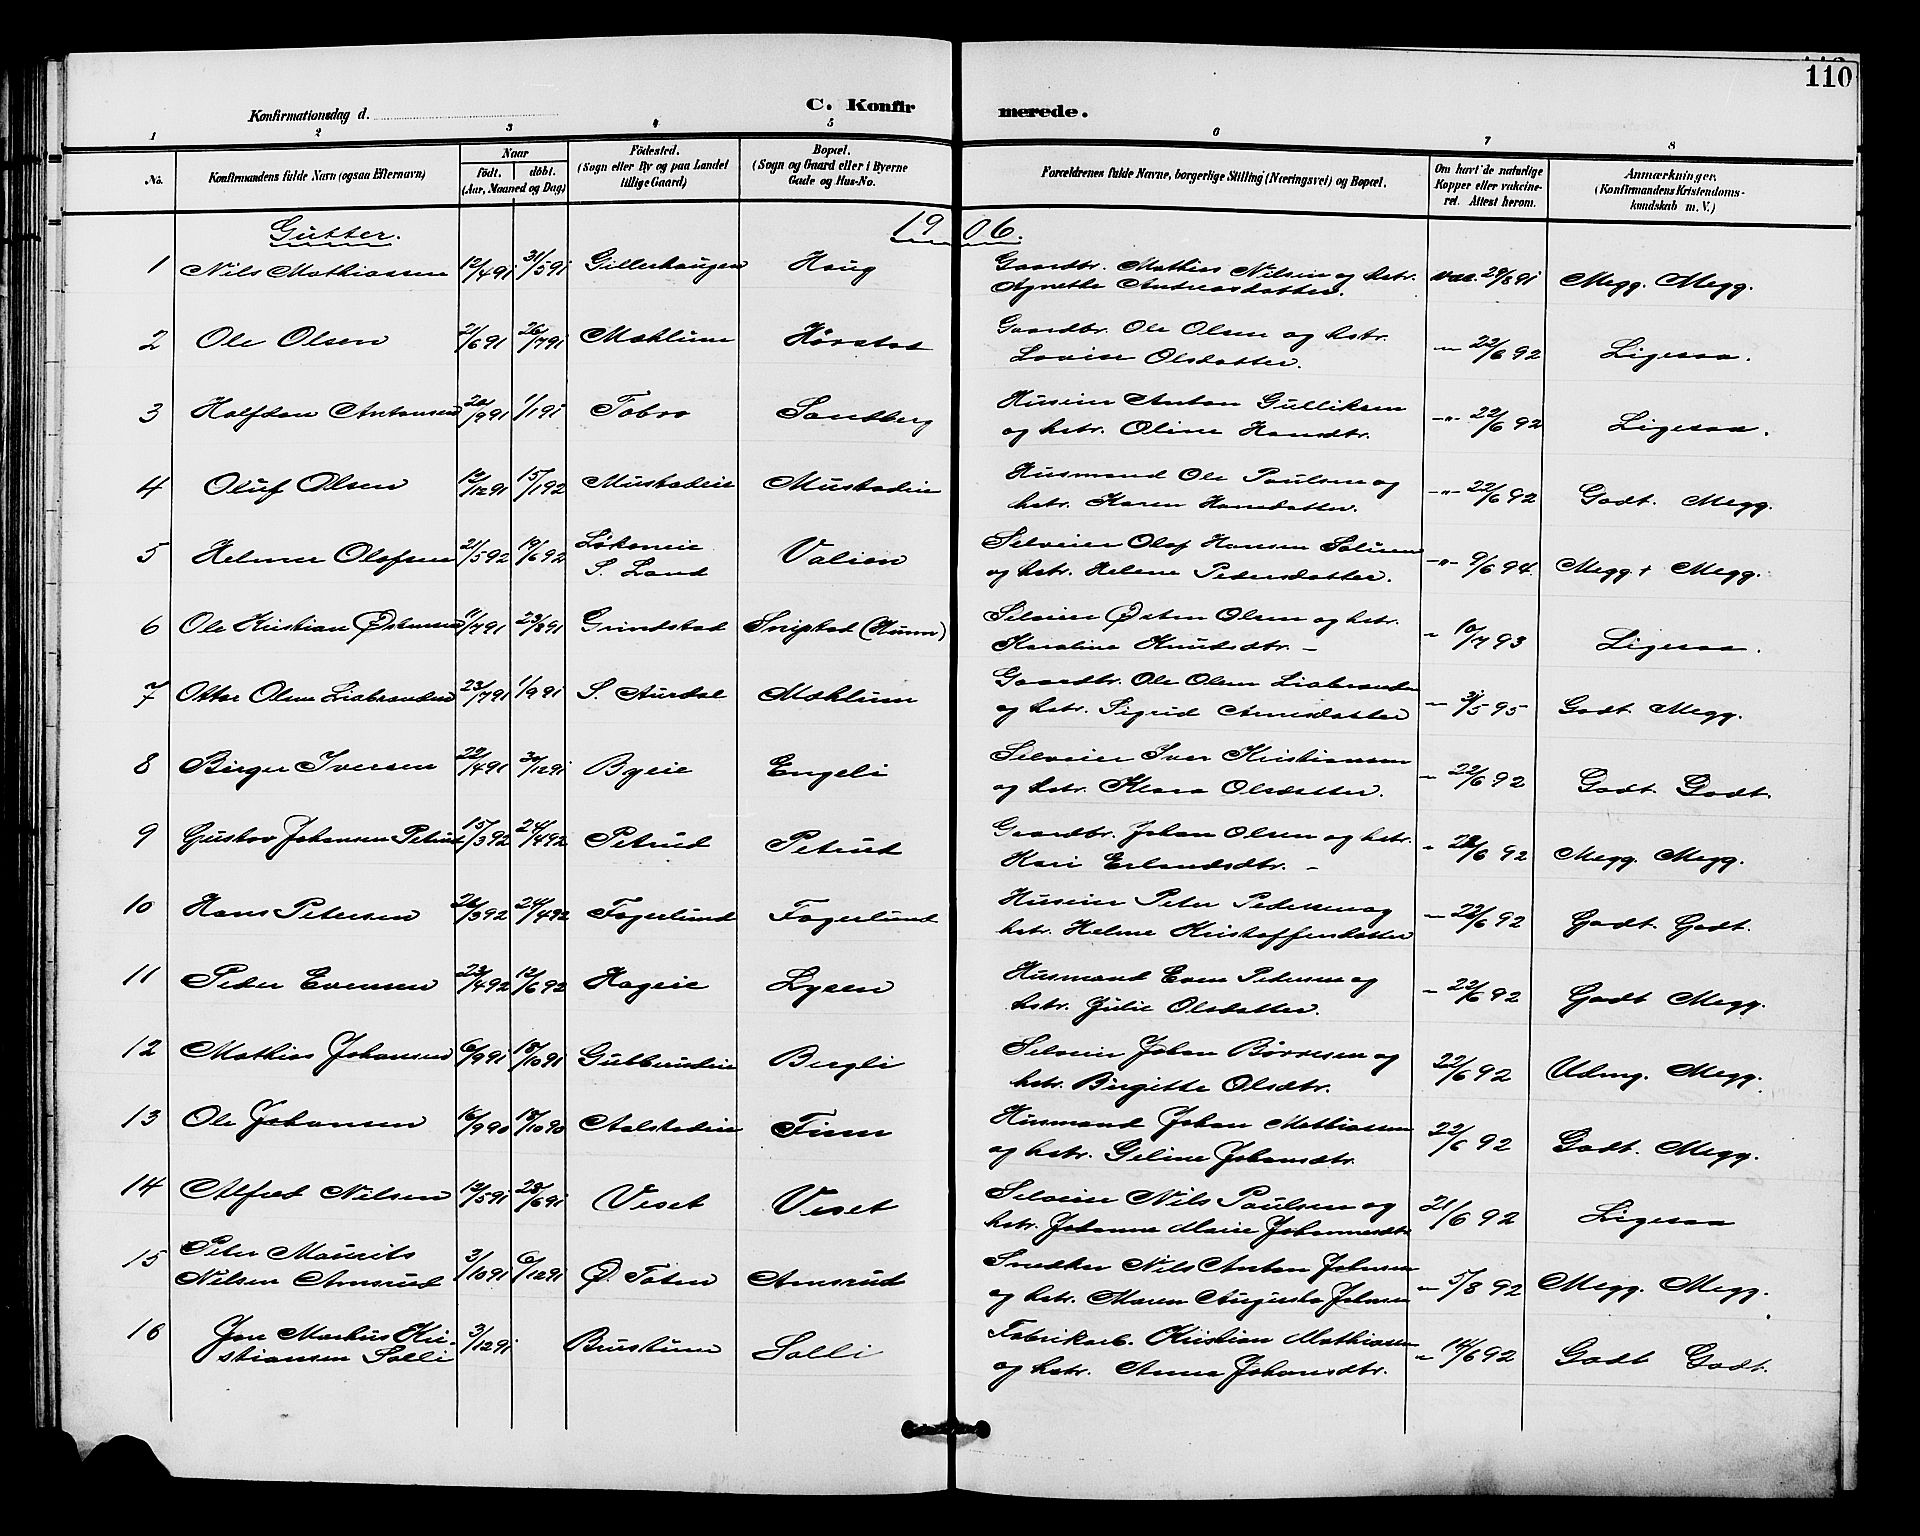 110
C. Konfirmerede.
Konfirmationsdag d.
1 2 3 4 5 6 7 8
No.
Konfirmandens fulde Navn (ogsaa Efternavn)
Naar
født. døbt.
(Aar, Maaned og Dag)
Fødested.
(Sogn eller By og paa Landet
tillige Gaard)
Bopæl.
(Sogn og Gaard eller i Byerne
Gade og Hus-No.
Forældrenes fulde Navne, borgerlige Stilling (Næringsvei) og Bopæl.
Om havt de naturlige
Kopper eller vakcine-
ret. Attest herom.
Anmærkninger.
(Konfirmandens Kristendoms-
kundskab m. V.)
Gutter. 1906.
1 Nils Mathiassen 12/4 91 31/5 91 Gillerhaugen Haug Gaardbr. Mathias Nilsen og hstr.
Agnethe Andreasdatter. vac. 20/8 91 Megg. Megg.
2 Ole Olsen 21/6 91 26/7 91 Mæhlum Hørstad Gaardbr. Ole Olsen og hstr.
Lovise Olsdatter. -"- 22/6 92 Ligesaa.
3 Halfdan Antonsen 20/9 91 1/1 91 Tobro Sandberg Huseier Anton Gulliksen
og hstr. Oline Hansdtr. -"- 22/6 92 Ligesaa.
4 Oluf Olsen 12/12 91 15/1 92 Mustadeie Mustadeie Husmand Ole Paulsen og
hstr. Karen Hansdatter. -"- 22/6 92 Godt. Megg.
5 Helmer Olafsen 21/5 92 19/6 92 Løkeneie
S. Land Valien Selveier Olaf Hansen
og hstr. Helene Pedersdatter. -"- 9/6 94. Megg. Megg.
6 Ole Kristian Østensen 11/7 91 23/8 91 Grindstad Snipstad (Hunn) Selveier Østen Olsen og hstr.
Karoline Knudsdtr. - " 10/7 93 Ligesaa.
7 Ottar Olsen Liabranden 23/7 91 1/9 91 S. Aurdal Mæhlum Gaardbr. Ole Olsen Liabranden
og hstr. Sigrid Arnesdatter " 31/5 95 Godt. Megg.
8 Birger Iversen 22/4 91 30/12 91 Byeie Engeli Selveier Iver Kristiansen
og hstr. Klara Olsdatter. " 22/6 92 Godt. Godt.
9 Gustav Johansen Petrud 15/3 92 24/4 92 Petrud Petrud Gaardbr. Johan Olsen og hstr.
Kari Erlandsdtr. - " 22/6 92 Megg. Megg.
10 Hans Petersen 26/3 92 24/4 92 Fagerlund Fagerlund Huseier Peter Pedersen og
hstr. Helene Kristoffersdatter " 22/6 92 Godt. Godt.
11 Peder Evensen 23/4 92 12/6 92 Hageie Lysen Husmand Even Pedersen og
hstr. Julie Olsdatter. " 22/6 92 Godt Megg.
12 Mathias Johansen 6/9 91 18/10 91 Gubberudeie Bergli Selveier Johan Børresen og
hstr. Birgitte Olsdtr. 22/6 92 Udm. Megg.
13 Ole Johansen 16/9 90 19/10 90 Aalstadeie Husmand Johan Mathiassen
og hstr. Geline Johansdtr. 22/6 92 Godt. Megg.
14 Alfred Nilsen 12/5 91 28/6 91 Veset Veset Selveier Nils Paulsen og
hstr. Johanne Marie Johannesdtr. 21/6 92 Ligesaa
15 Peter Maurits
Nilsen Amsrud 3/10 91 6/12 91 Ø. Toten Amsrud Snedker Nils Anton Johnsen
og hstr. Maren Augusta Johnsen " 5/8 92 Megg. Megg.
16 Jon Markus Kri-
stiansen Solli 3/12 91 Brustuen Solli Fabrikarb. Kristian Mathiassen
og hstr. Anna Johansdtr. " 14/6 92 Godt Godt.